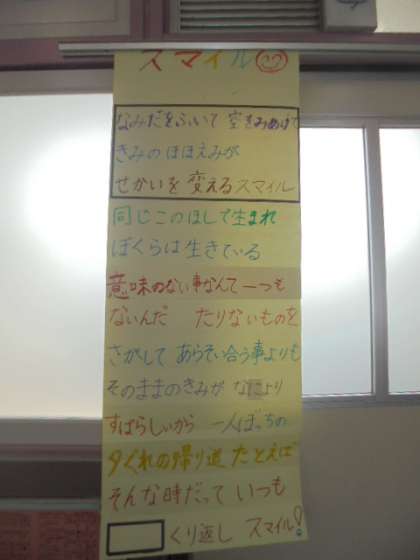 スマイル
なみだをふいて 空をみあげて
きみのほほえみが
せかいを変えるスマイル
同じこのほしで生まれ
ぼくらは生きている
意味のない事なんて一つも
ないんだ たりないものを
さがして あらそい合う事よりも
そのままのきみが なにより
すばらしいから 一人ぼっちの
夕ぐれの帰り道 たとえば
そんな時だって いつも
くり返し スマイル!